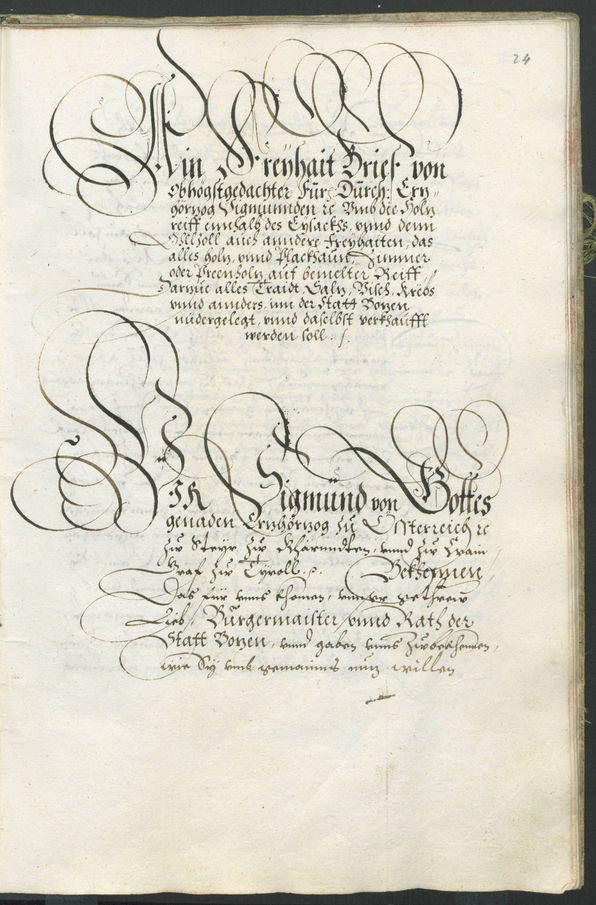 24
Ain Freyhait Brief von
obhögstgedachter Für: Dürch: Ertz
hörtzog Sigmünnden ⁊c Vmb die Holtz
reiff ennhalb des Eysackhs, vnnd denn
Zoll auch anndere Freyhaiten, das
alles holtz, vnnd Flackhaun Zimmer
oder Preenholtz, auf bemelter Reiff /
Darzue alles Traidt, Saltz, Visch, Krebs
vnnd annders, inn der Statt Botzen
nidergelegt, vnnd daselbst verkhaufft
werden soll ./.
WIR Sigmünd von Gottes
genaden Ertzhörtzog zü Össterreich ⁊c
zw Steyr zw Khärnndten, vnnd zw Crain
Graf zw Tyroll ⁊c. Bekhennen,
Das für vnns khomen, vnnser getrew
Lieb, Bürgermaister, vnnd Rath der
Statt Botzen, vnnd gaben vnns zwerkhennen,
wie Sy vmb gemaines nutz willen